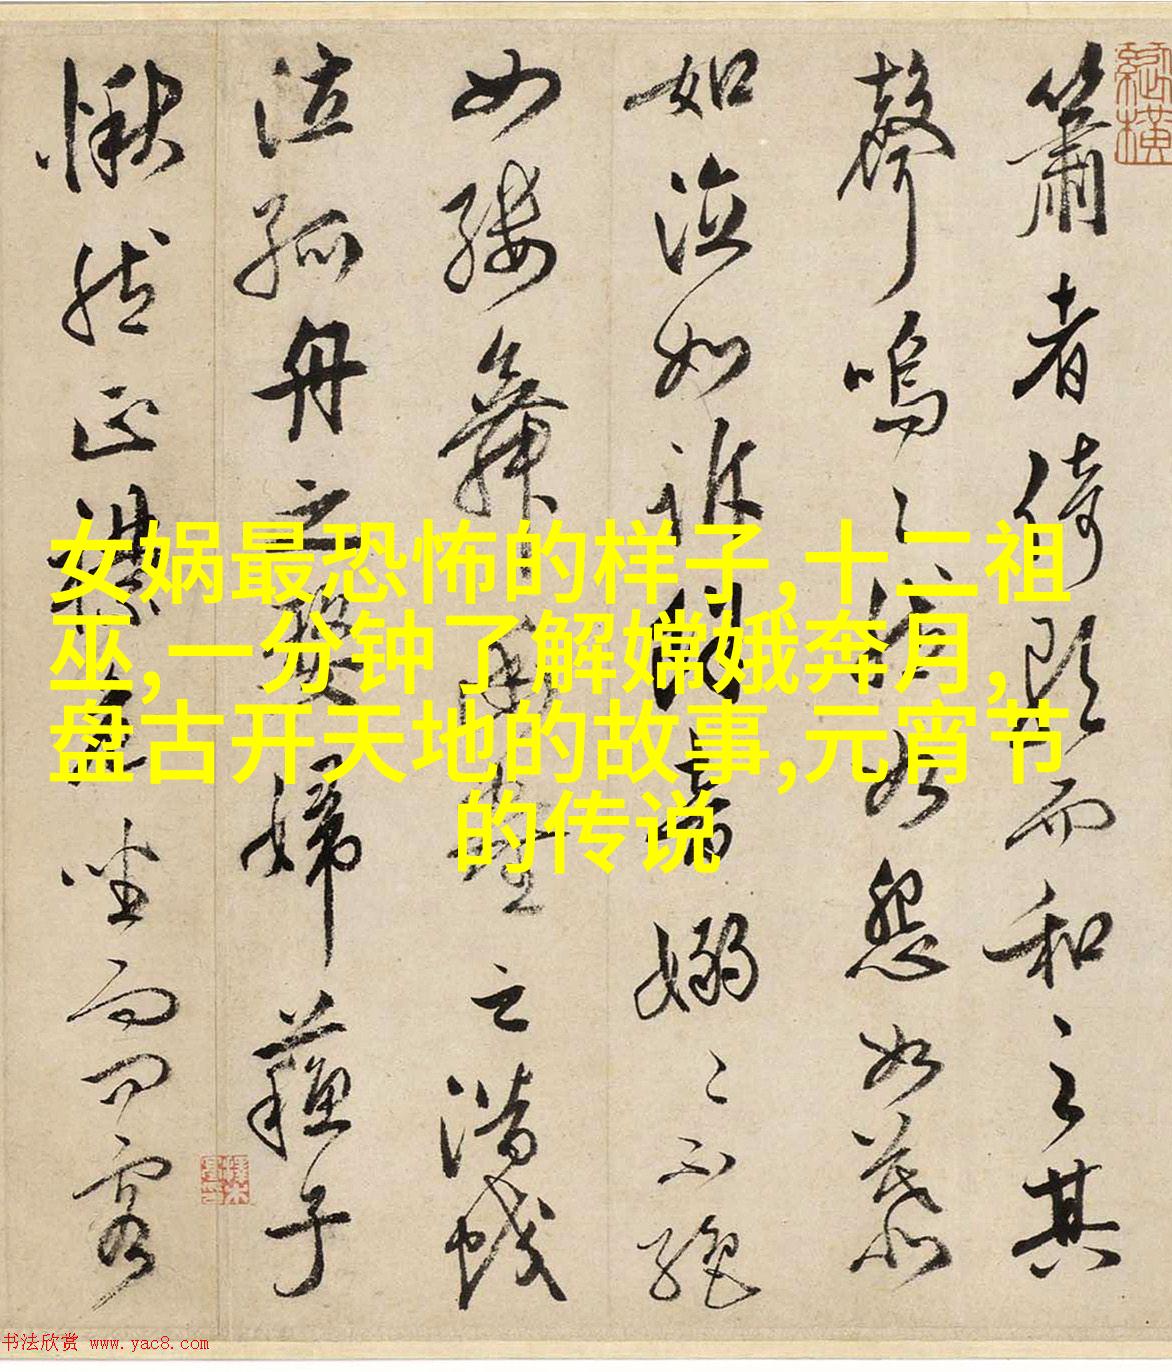 簫者倚歌而和之其
聲嗚〻然如怨如慕
如泣如訴餘音嫋〻不絕
如縷舞幽壑之潛蛟
泣孤舟之嫠婦蘇子
愀然正襟危坐而問客
女娲最恐怖的样子,十二祖
巫,一分钟了解嫦娥奔月,
盘古开天地的故事,元宵节
的传说
书法欣赏 www.yac8.com